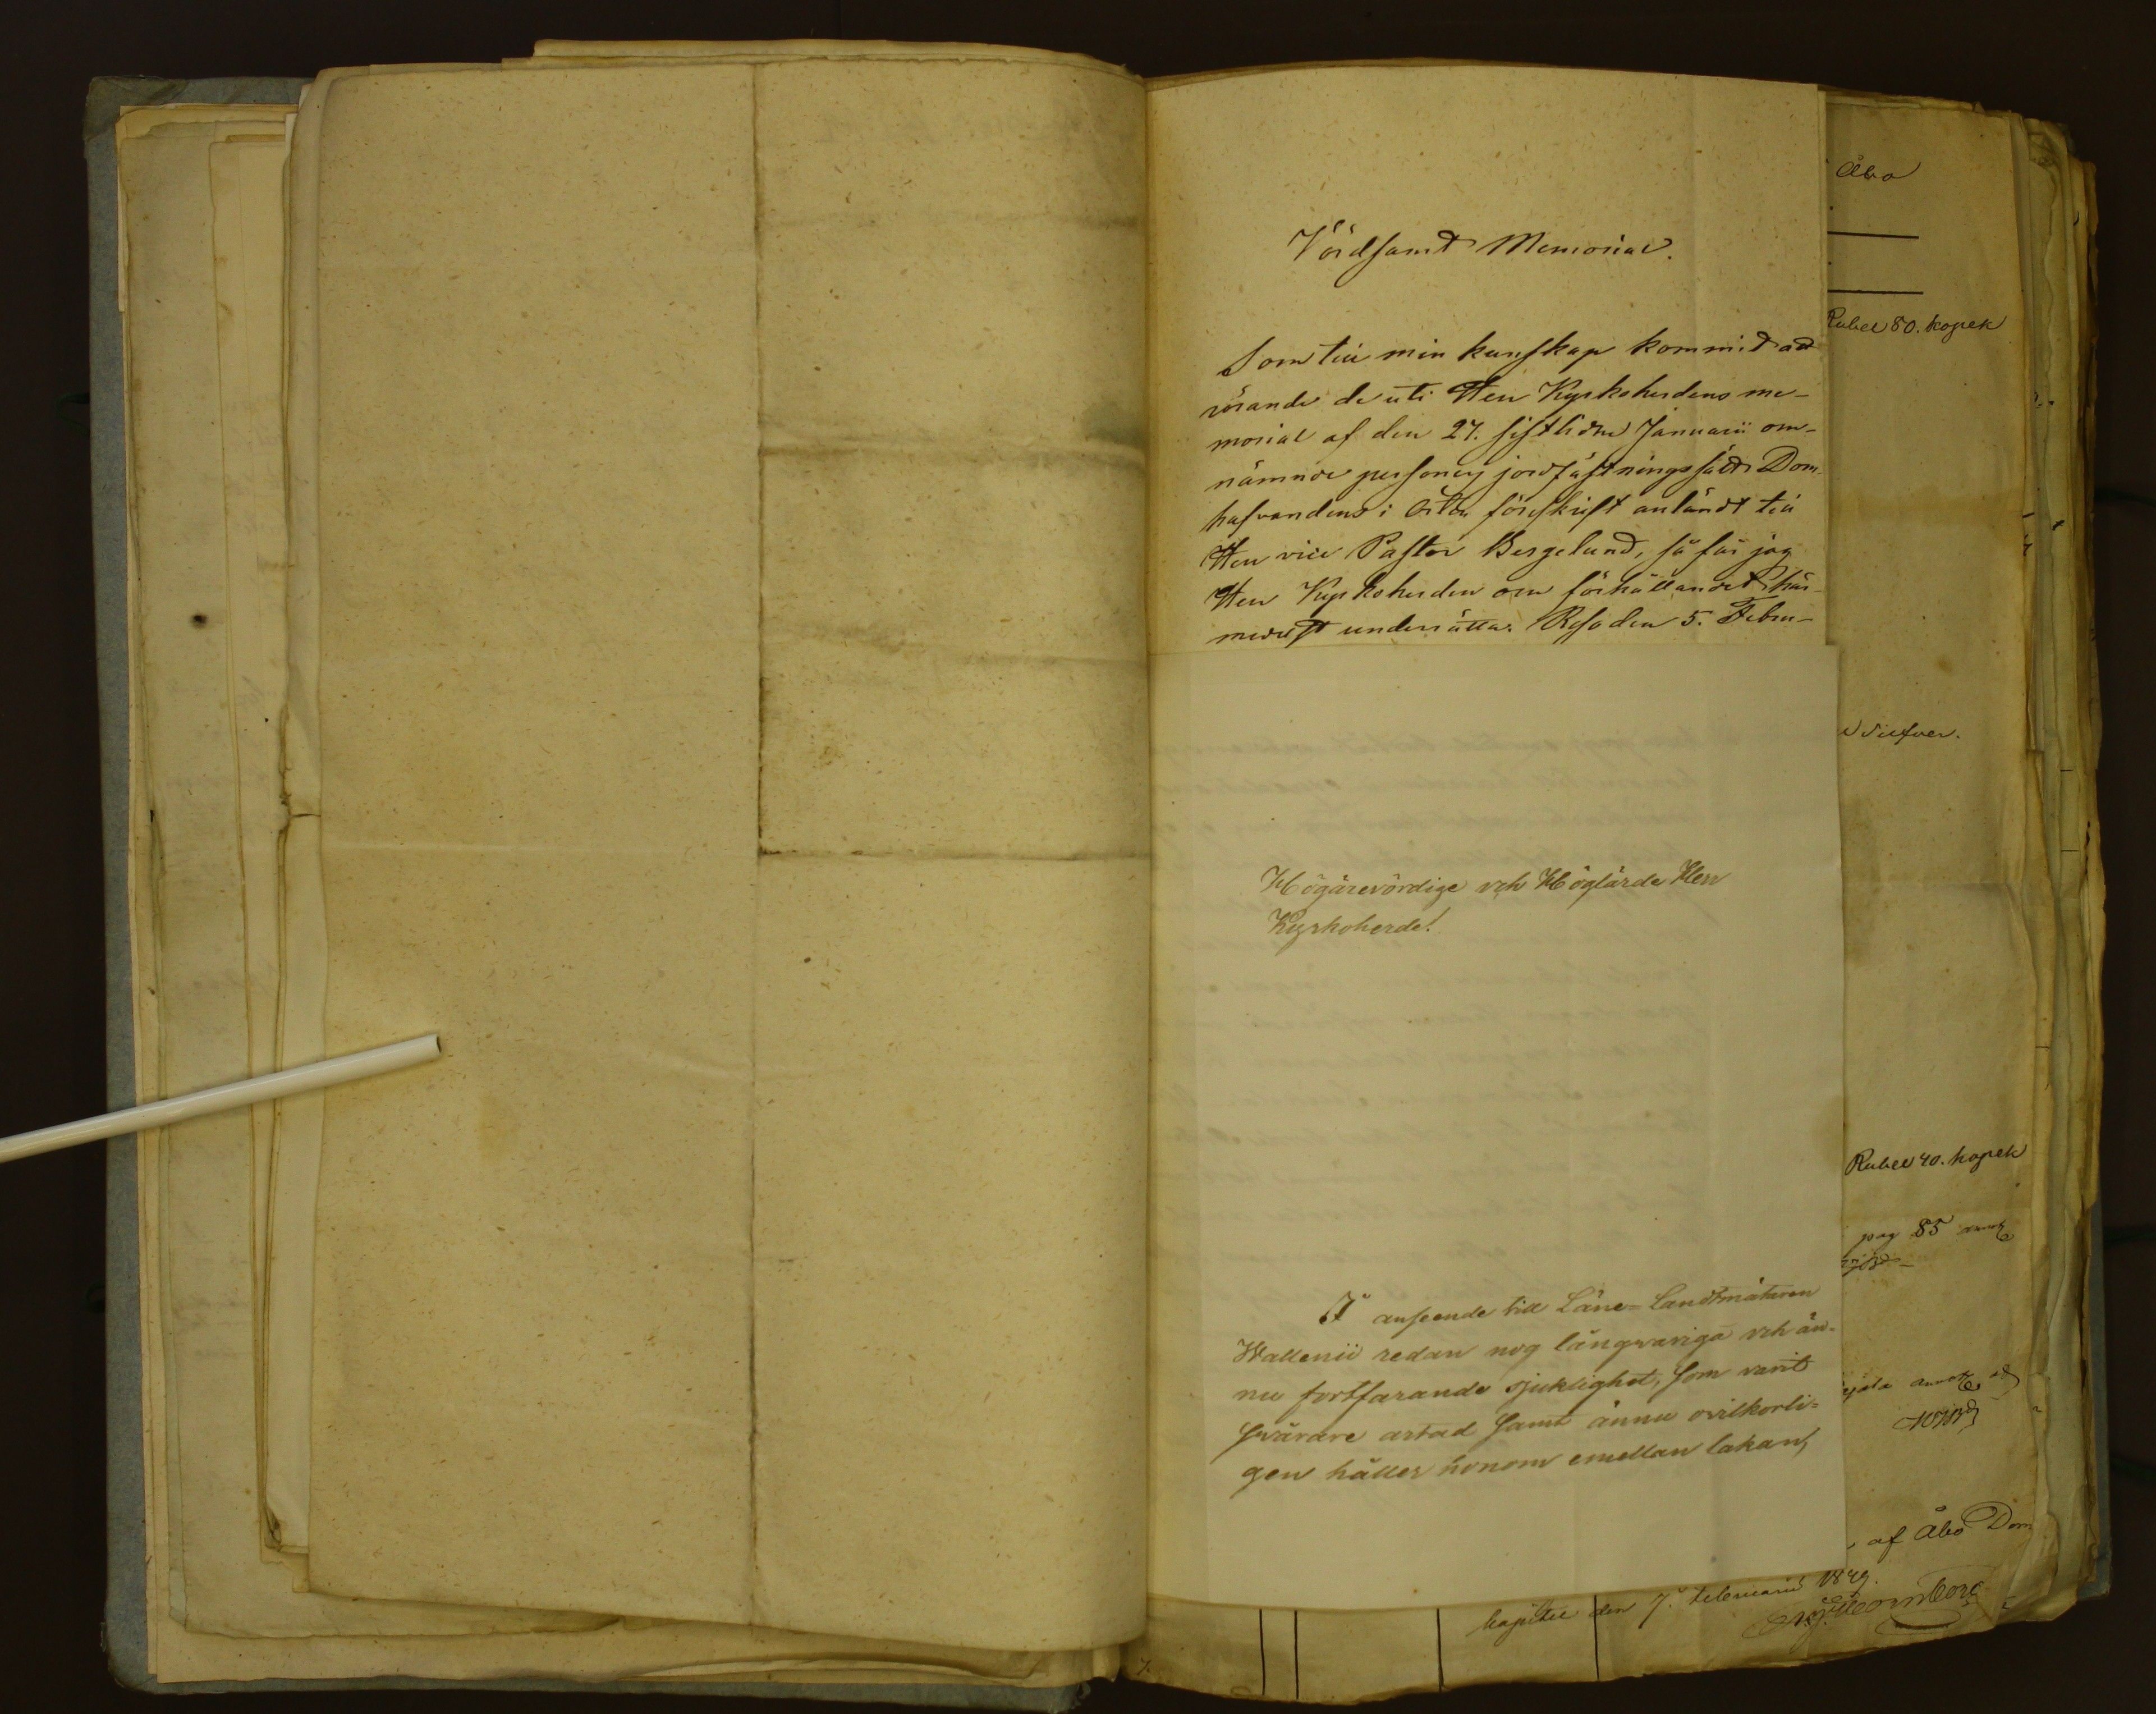 Vördsamt Memorial.
Som till min kunskap kommit att
rörande de uti Herr Kyrkoherdens me-
morial af den 27. sistlidne Januarii om-
nämnde personers jordfästningssätt Dom-
hafvandens i Orten föreskrift anländt till
Herr vice Pastor Bergelund, så får jag
Herr Kyrkoherden om förhållandet här-
medelst underrätta. Reso den 5. Febru-
Högärevördige och Höglärde Herr
Kyrkoherde!
I anseende till Läne-Landtmätaren
Wallenii redan nog långvariga och än-
nu fortfarande sjuklighet, som varit
svårare artad samt ännu ovilkorli-
gen håller honom emellan lakan,
Åbo
Rubel 80. kopek
Silfver.
Rubel 40. kopek
pag 85
af Åbo Dom
kapitel den 7. februarii 1849.